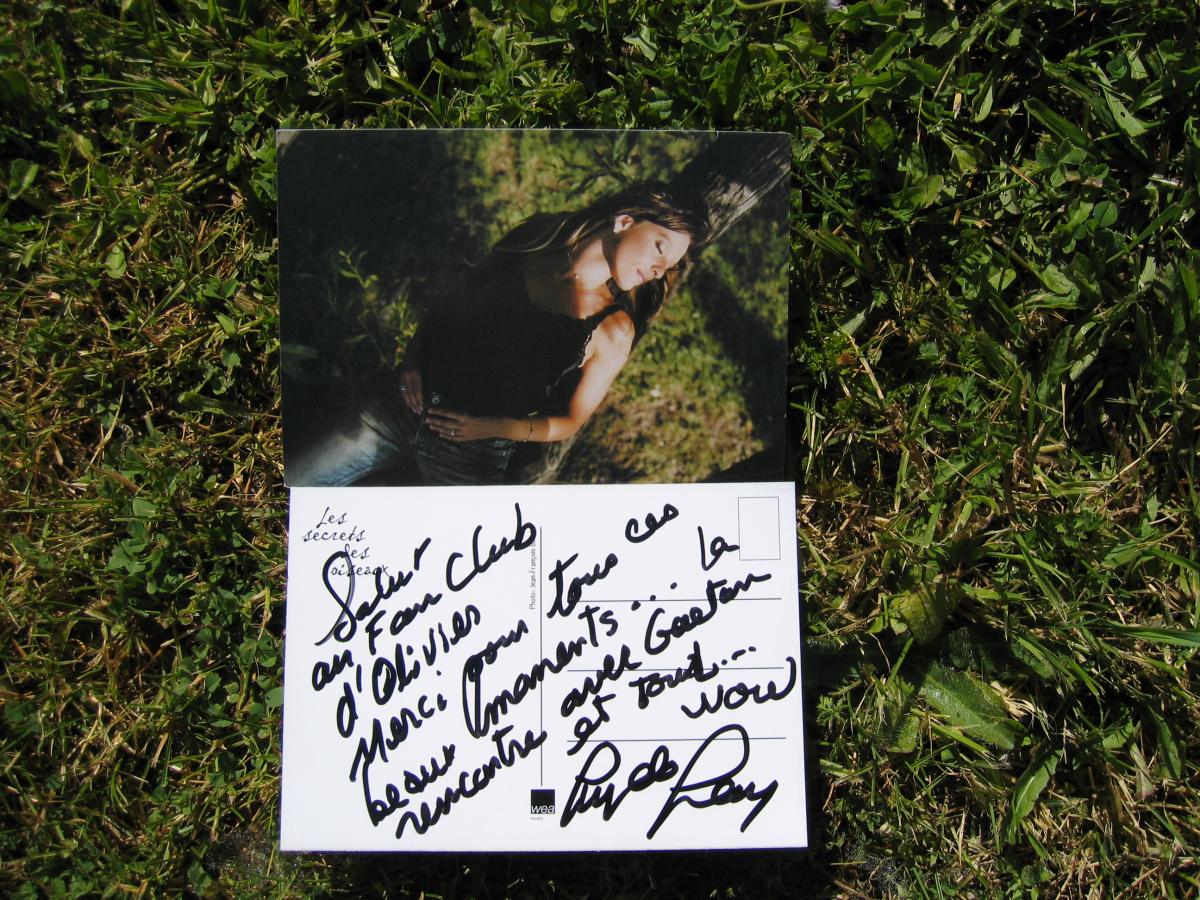 Les
secrets
des
oiseaux
Salut
au Fan Club
d'Olivier
Merci pour tous ces
beaux moments... la
rencontre avec Gaetan
et tout...
WOW
Photo: Jean-François
wea
music
Lynda Lemay